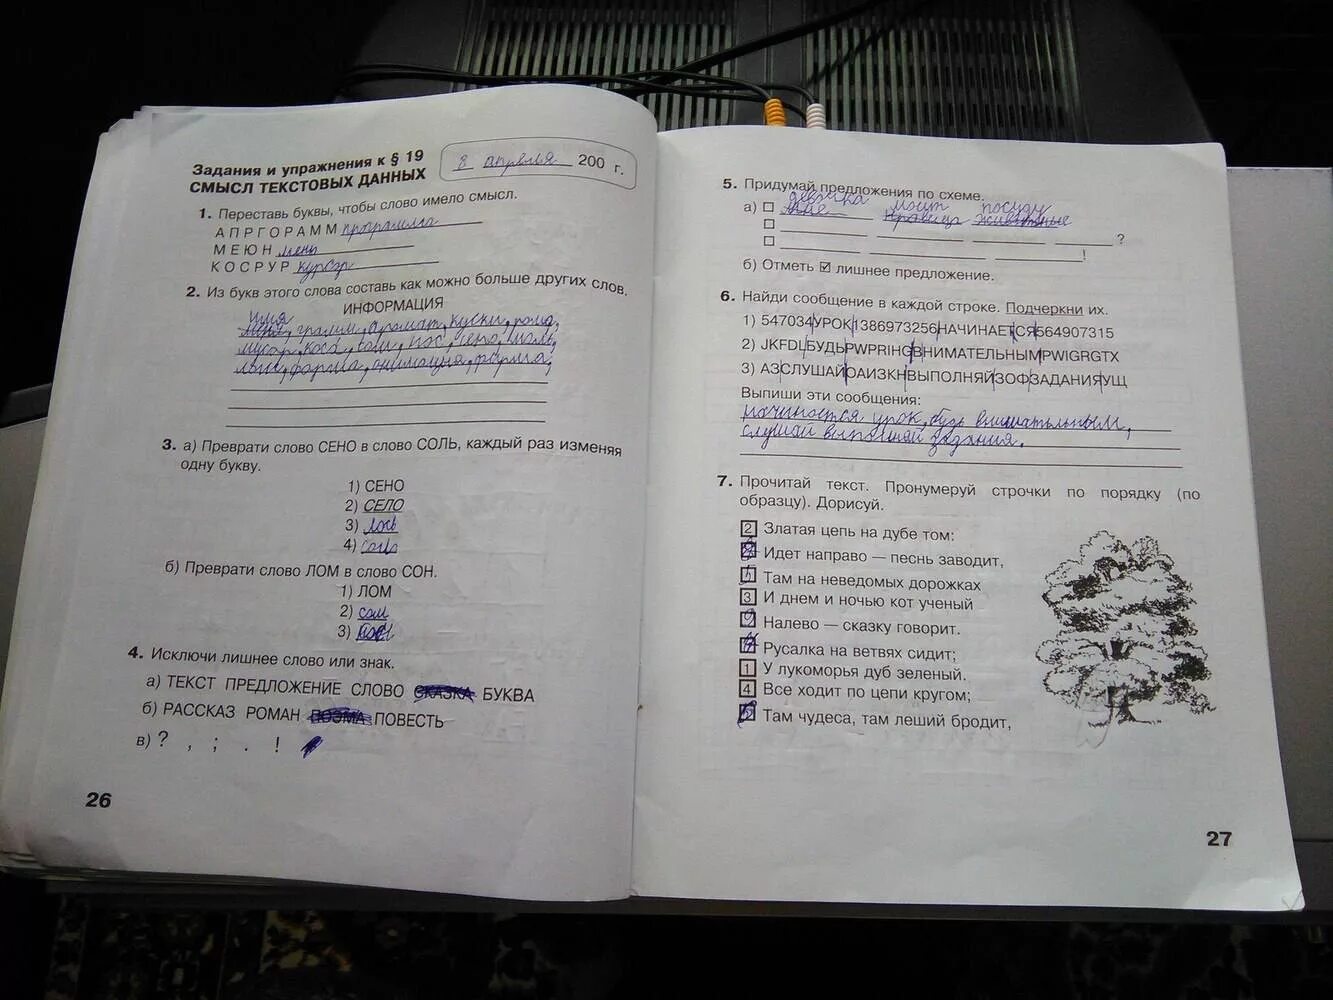 Задания и упражнения к § 19
СМЫСЛ ТЕКСТОВЫХ ДАННЫХ
8 апреля 200 г.
1. Переставь буквы, чтобы слово имело смысл.
АПРГОРАММ программа
МЕЮН меню
КОСРУР курсор
2. Из букв этого слова составь как можно больше других слов.
ИНФОРМАЦИЯ
имя
грамм, аромат, куски, рома,
мусор, коса, сом, нос, сено, моль,
форма, анимация, фирма,
3. а) Преврати слово СЕНО в слово СОЛЬ, каждый раз изменяя
одну букву.
1) СЕНО
2) СЕЛО
3)
4) соль
б) Преврати слово ЛОМ в слово СОН.
1) ЛОМ
2) сом
3)
4. Исключи лишнее слово или знак.
а) ТЕКСТ ПРЕДЛОЖЕНИЕ СЛОВО СКАЗКА БУКВА
б) РАССКАЗ РОМАН ПОЭМА ПОВЕСТЬ
в) ? , ; . !
26
5. Придумай предложения по схеме.
девочка моет посуду
а)
?
!
б) Отметь ☑ лишнее предложение.
6. Найди сообщение в каждой строке. Подчеркни их.
1) 547034УРОК1386973256НАЧИНАЕТСЯ564907315
2) JKFDLБУДЬPWPRIHGВНИМАТЕЛЬНЫМPWIGRGTX
3) АЗСЛУШАЙОАИЗКНВЫПОЛНЯЙЗОФЗАДАНИЯУЩ
Выпиши эти сообщения:
начинается урок, будь внимательным,
слушай выполняй задания.
7. Прочитай текст. Пронумеруй строчки по порядку (по
образцу). Дорисуй.
2 Златая цепь на дубе том:
Идет направо — песнь заводит,
Там на неведомых дорожках
3 И днем и ночью кот ученый
9 Налево — сказку говорит.
Русалка на ветвях сидит;
1 У лукоморья дуб зеленый.
4 Все ходит по цепи кругом;
Там чудеса, там леший бродит,
27